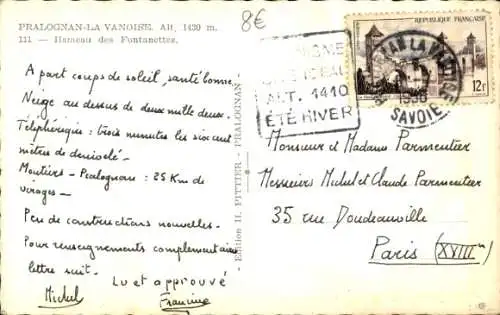 PRALOGNAN-LA VANOISE. Alt. 1430 m.
111 — Hameau des Fontanettes.
8€
A part coups de soleil, santé bonne.
Neige au dessus de deux mille deux.
Téléphérique : trois minutes les six cent
mètres de denivelé —
Moutiers - Pralognan : 28 Km de
virages —
Peu de constructions nouvelles.
Pour renseignements complémentaires
lettre suit.
Lu et approuvé
Michel Francine
- Edition H. PITTIER - PRALOGNAN -
ALT. 1410
ÉTÉ HIVER
REPUBLIQUE FRANÇAISE
12F
PRALOGNAN LA VANOISE
SAVOIE
Monsieur et Madame Parmentier
Messieurs Michel et Claude Parmentier
35 rue Doudeauville
Paris (XVIIIe)